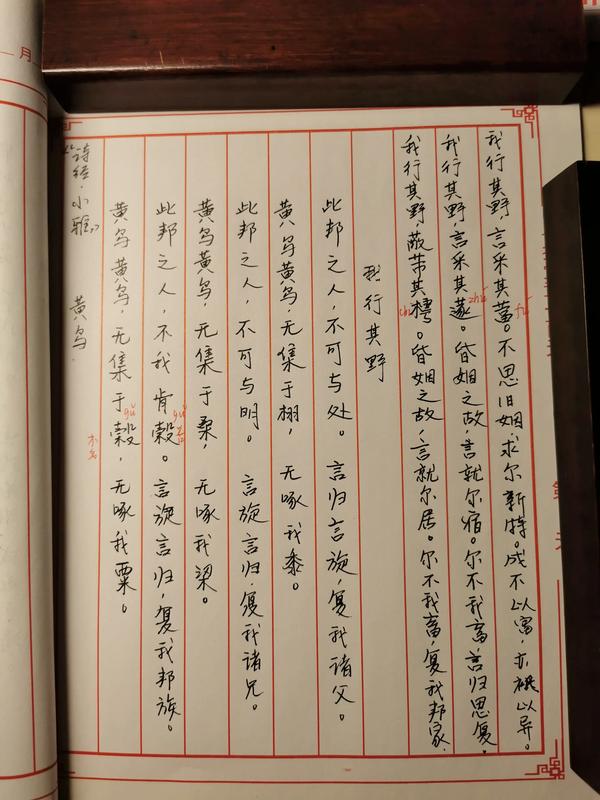 月
“诗经·小雅” 黄鸟.
黄鸟黄鸟,无集于榖,无啄我粟。
gǔ
木名
此邦之人,不我肯穀。言旋言归,复我邦族。
gǔ
黄鸟黄鸟,无集于桑,无啄我梁。
此邦之人,不可与明。言旋言归.复我诸兄。
黄鸟黄鸟,无集于栩,无啄我黍。
此邦之人,不可与处。言归言旋,复我诸父。
我行其野
我行其野,蔽芾其樗。昏姻之故,言就尔居。尔不我畜,复我邦家.
chū
我行其野,言采其蓫。昏姻之故,言就尔宿。尔不我畜,言归思复。
zhú
我行其野,言采其葍。不思旧姻,求尔新特。成不以富,亦祗以异。
fú